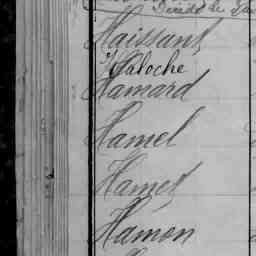 Décédé le
Haissant
Haloche
Hamard
Hamel
Hamel
Hamon